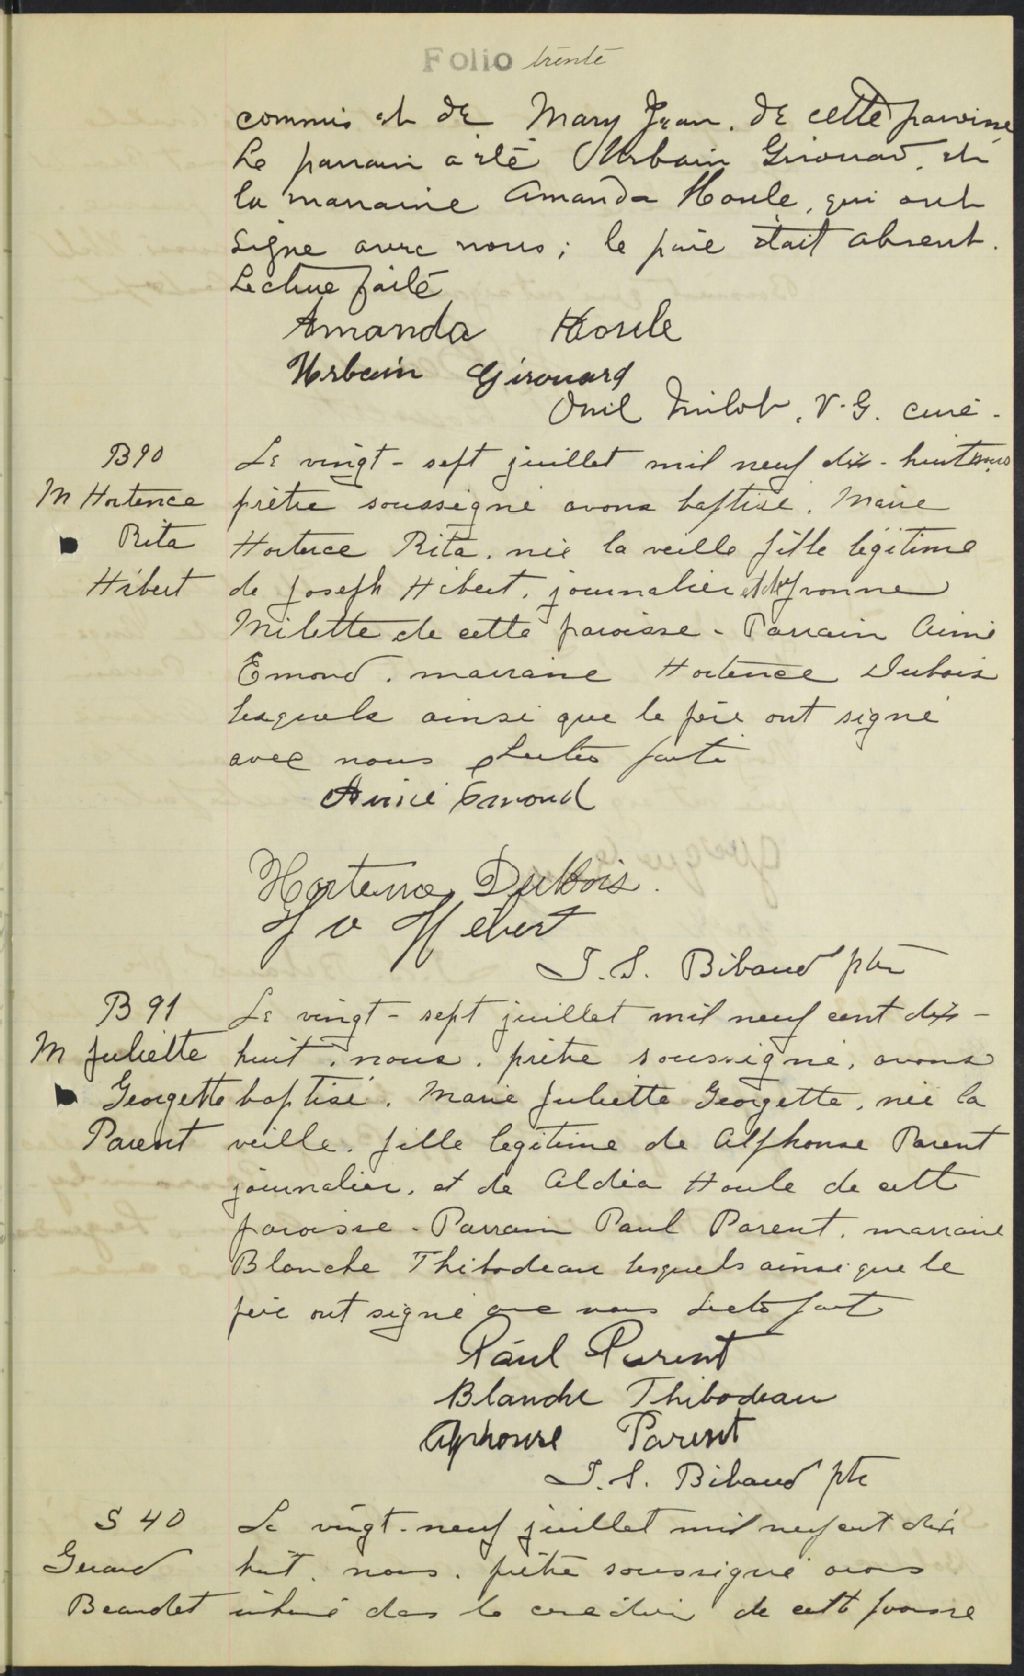 Folio trente
commis et de Mary Jean, de cette paroisse
Le parrain a été Urbain Girouard et
la marraine Amanda Houle, qui ont
signé avec nous; le père était absent.
Lecture faite
Amanda Houle
Urbain Girouard
Onil Milot, V.G. curé.
B90
Le vingt-sept juillet mil neuf dix-huit nous
M Hortence
prêtre soussigné avons baptisé, Marie
Rita
Hortence Rita, née la veille fille légitime
Hébert
de Joseph Hébert, journalier et de Yvonne
Milette de cette paroisse - Parrain Aimé
Emond, marraine Hortence Dubois
lesquels ainsi que le père ont signé
avec nous Lecture faite
Aimé Emond
Hortence Dubois.
J O Hébert
J. S. Bibaud ptre
B 91
Le vingt-sept juillet mil neuf cent dix-
M Juliette
huit, nous, prêtre soussigné, avons
Georgette
baptisé, Marie Juliette Georgette, née la
Parent
veille, fille légitime de Alphonse Parent
journalier, et de Aldéa Houle de cette
paroisse - Parrain Paul Parent, marraine
Blanche Thibodeau lesquels ainsi que le
père ont signé avec nous Lecture faite
Paul Parent
Blanche Thibodeau
Alphonse Parent
J. S. Bibaud ptre
S 40
Le vingt-neuf juillet mil neuf cent dix
Gerard
huit, nous, prêtre soussigné avons
Beaudet
inhumé dans le cimetière de cette paroisse